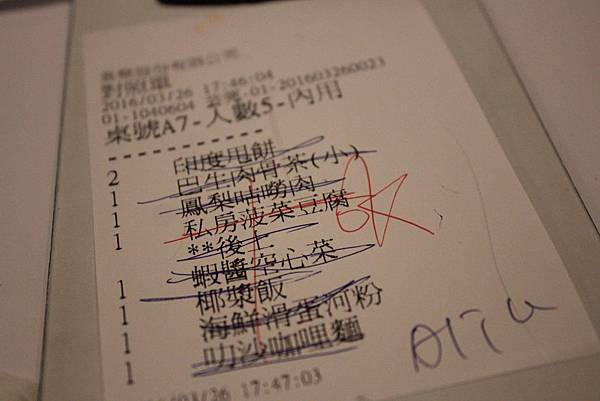 對照單
2016/03/26 17:46:04
01-1040604 -01-201603260023
桌號A7-人數5-內用
2 印度甩餅
1 巴生肉骨茶(小)
1 鳳梨咕嘮肉
1 私房菠菜豆腐
**後上
1 蝦醬空心菜
1 椰漿飯
1 海鮮滑蛋河粉
1 叻沙咖哩麵
/03/26 17:47:03
OK